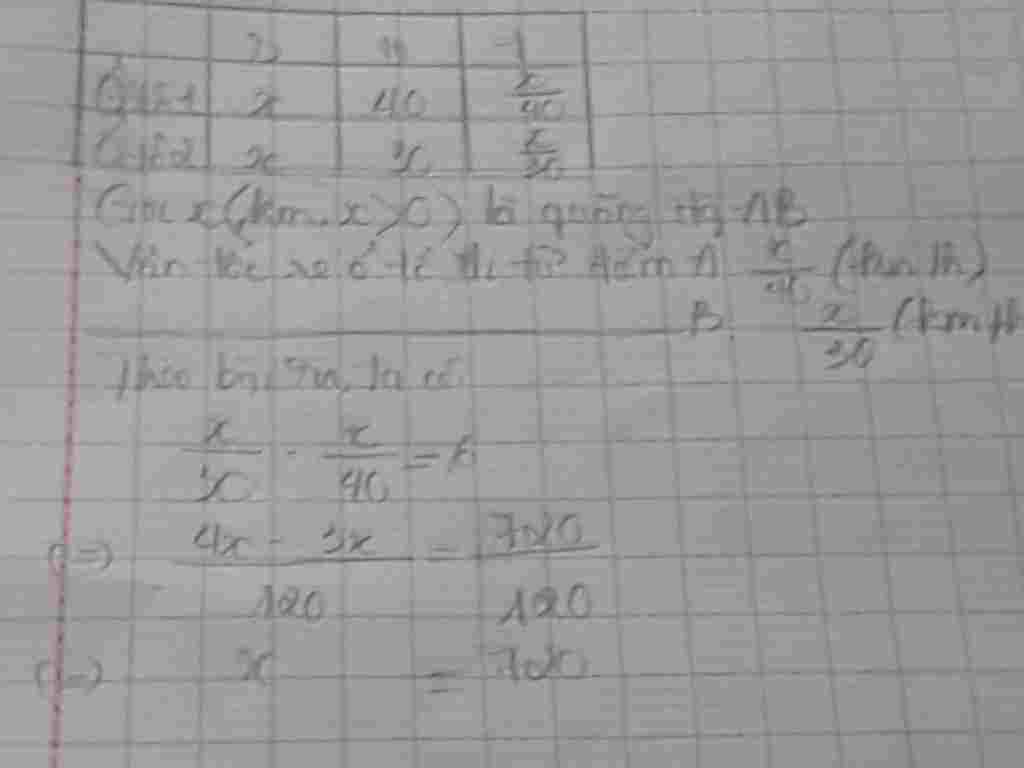 x 40 x/40
x 30 x/30
Gọi x (km, x>0) là quãng đg AB
Vận tốc xe ô tô đi từ điểm A x/40 (km/h)
B x/30 (km/h
Theo bài ta có
x/30 - x/40 = 6
(=) 4x - 3x/120 = 720/120
(=) x = 720